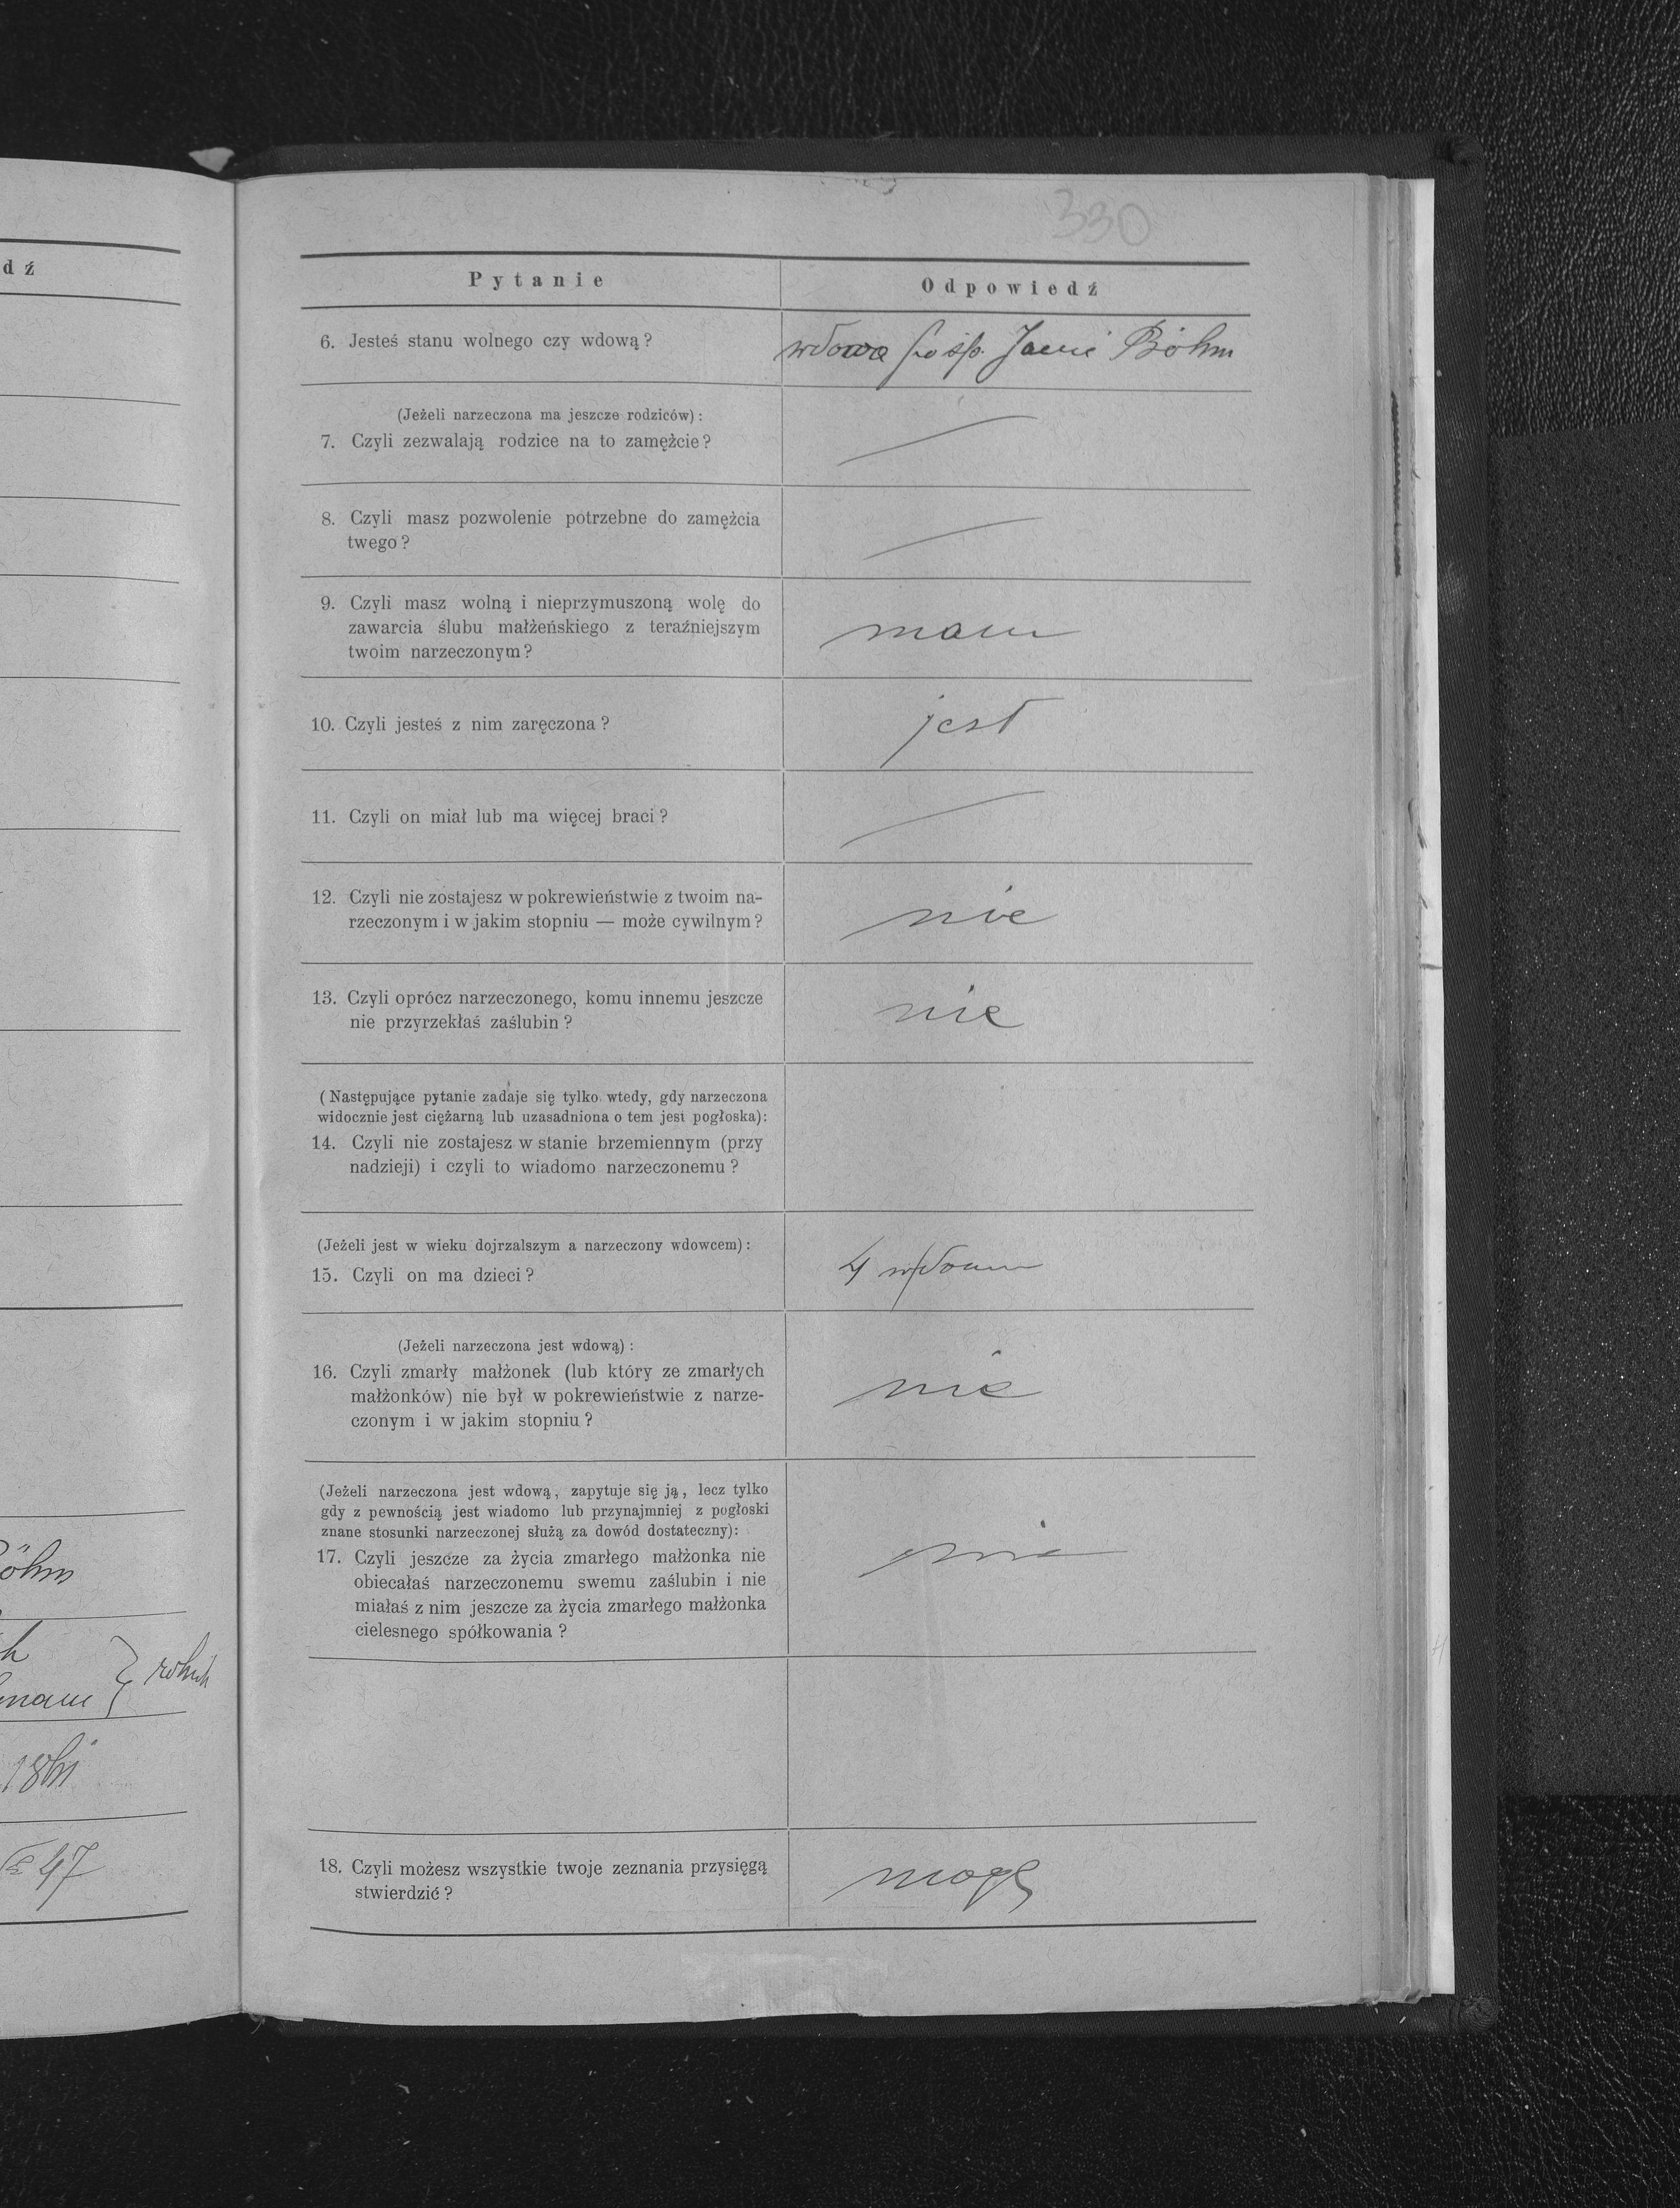 dź
öhm
h
mann } rolnik
1861
47
330
Pytanie Odpowiedź
6. Jesteś stanu wolnego czy wdową? wdowa po śp. Janie Böhm
(Jeżeli narzeczona ma jeszcze rodziców):
7. Czyli zezwalają rodzice na to zamężcie?
8. Czyli masz pozwolenie potrzebne do zamężcia
twego?
9. Czyli masz wolną i nieprzymuszoną wolę do
zawarcia ślubu małżeńskiego z teraźniejszym
twoim narzeczonym?
mam
10. Czyli jesteś z nim zaręczona? jest
11. Czyli on miał lub ma więcej braci?
12. Czyli nie zostajesz w pokrewieństwie z twoim na-
rzeczonym i w jakim stopniu — może cywilnym?
nie
13. Czyli oprócz narzeczonego, komu innemu jeszcze
nie przyrzekłaś zaślubin?
nie
(Następujące pytanie zadaje się tylko wtedy, gdy narzeczona
widocznie jest ciężarną lub uzasadniona o tem jest pogłoska):
14. Czyli nie zostajesz w stanie brzemiennym (przy
nadzieji) i czyli to wiadomo narzeczonemu?
(Jeżeli jest w wieku dojrzalszym a narzeczony wdowcem):
15. Czyli on ma dzieci? 4
(Jeżeli narzeczona jest wdową):
16. Czyli zmarły małżonek (lub który ze zmarłych
małżonków) nie był w pokrewieństwie z narze-
czonym i w jakim stopniu?
nie
(Jeżeli narzeczona jest wdową, zapytuje się ją, lecz tylko
gdy z pewnością jest wiadomo lub przynajmniej z pogłoski
znane stosunki narzeczonej służą za dowód dostateczny):
17. Czyli jeszcze za życia zmarłego małżonka nie
obiecałaś narzeczonemu swemu zaślubin i nie
miałaś z nim jeszcze za życia zmarłego małżonka
cielesnego spółkowania?
nie
18. Czyli możesz wszystkie twoje zeznania przysięgą
stwierdzić?
mogę